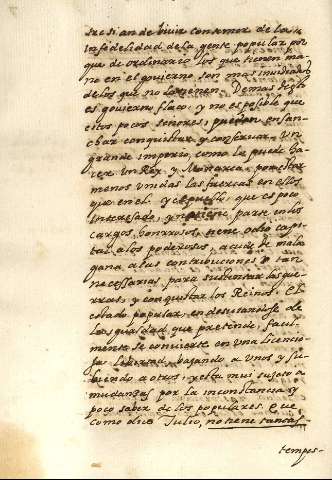 tresi an de viuir con temor de la
infidelidad de la gente popular por
que de ordinario los que tienen ma
no en el gouierno son mas inuidiados
de los que no lo tienen. Demas desto
es gouierno flaco, y no es posible que
estos pocos señores, puedan ensan
char conquistar y conseruar un
grande imperio, como lo puede ha
cer un Rey, y Monarca, por estar
menos unidas las fuerzas en ellos
que en el. y el pueblo, que es poco
interesado, y no tiene parte en los
cargos, honrrosos, tiene odio capi
tal a los poderosos, acude de mala
gana a las contribuciones tan
necessarias, para sustentar las gue
rras, y conquistar los Reinos. El
estado popular, en desuiandose de
la igualdad que pretende, facil
mente se conuierte en una licencio
sa libertad, bajando a unos y su
biendo a otros, y esta mui sujeto a
mudanzas por la inconstancia y
poco saber de los populares. Ca
como dice Tulio, no tiene tantas
tempes-